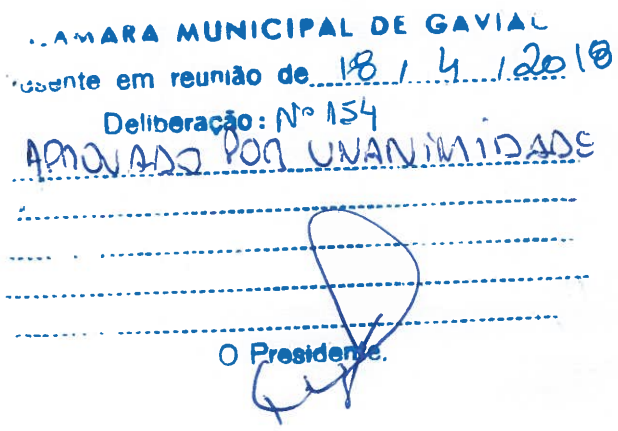 AMARA MUNICIPAL DE GAVIA
em reunião de 18 / 4 / 2018
Deliberação: Nº 154
APROVADO POR UNANIMIDADE
O Presidente,